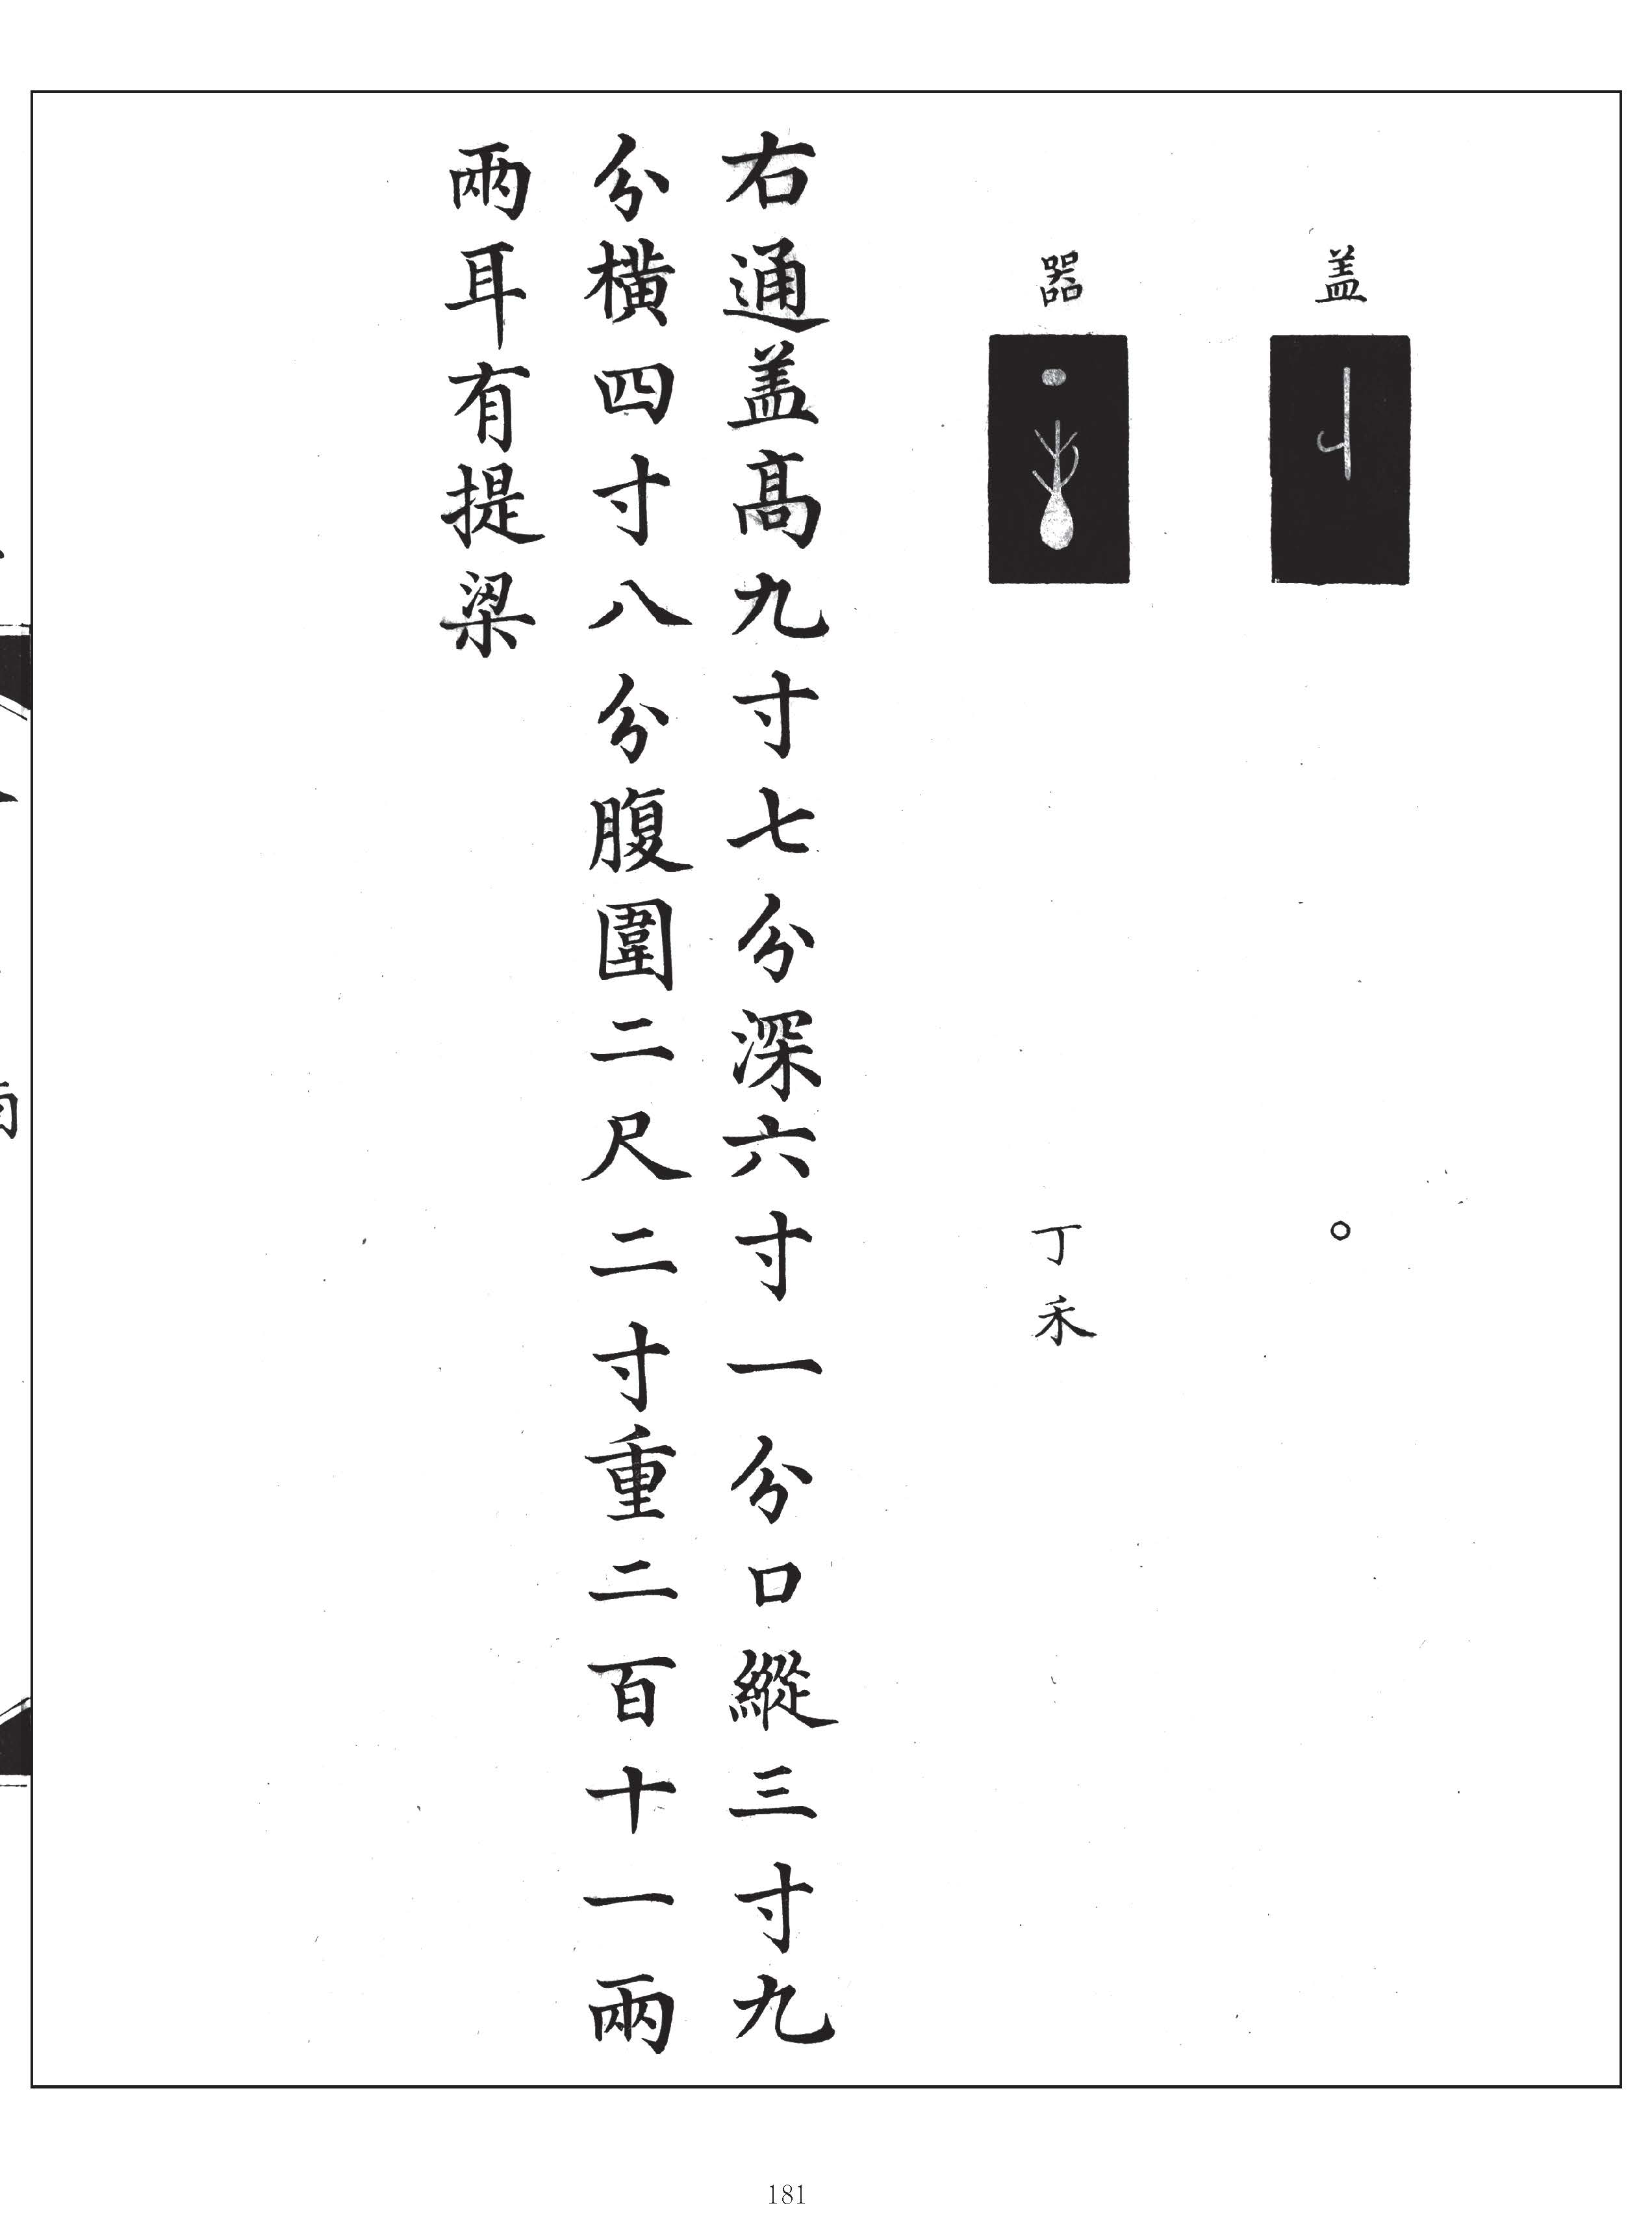 盖
○
器
丁禾
右通盖高九寸七分深六寸一分口縱三寸九
分橫四寸八分腹圍二尺二寸重二百十一兩
兩耳有提梁
181